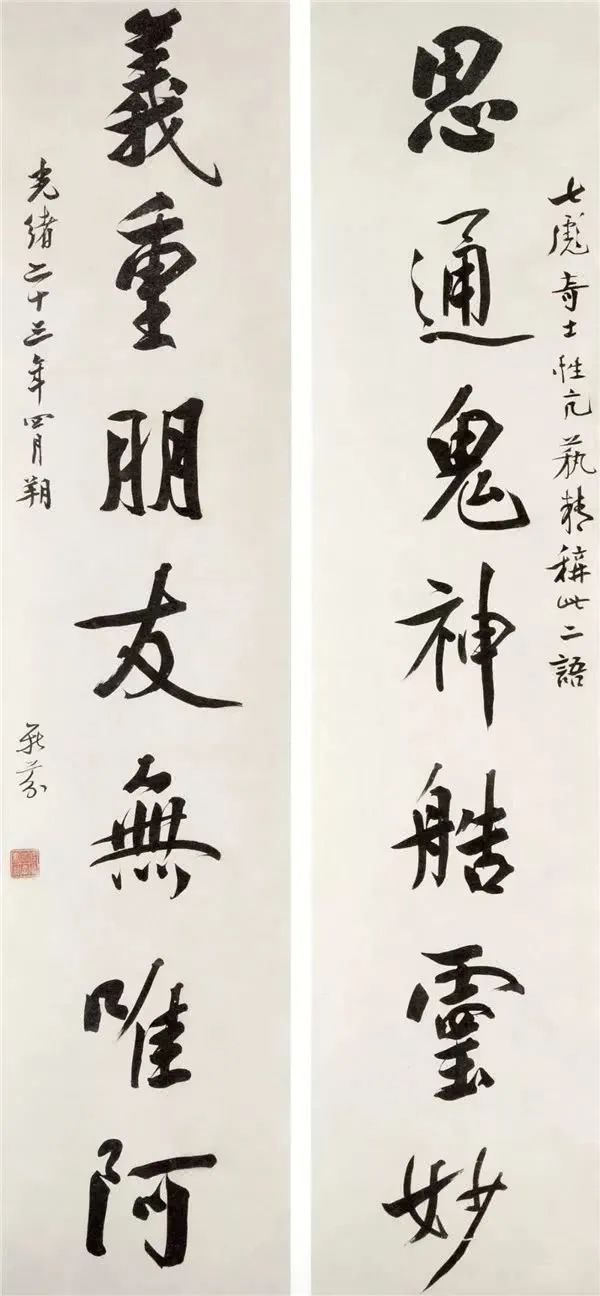 七彪奇士性亢蓺精稱此二語
思通鬼神艁靈妙
義重朋友無唯阿
光緒二十三年四月朔